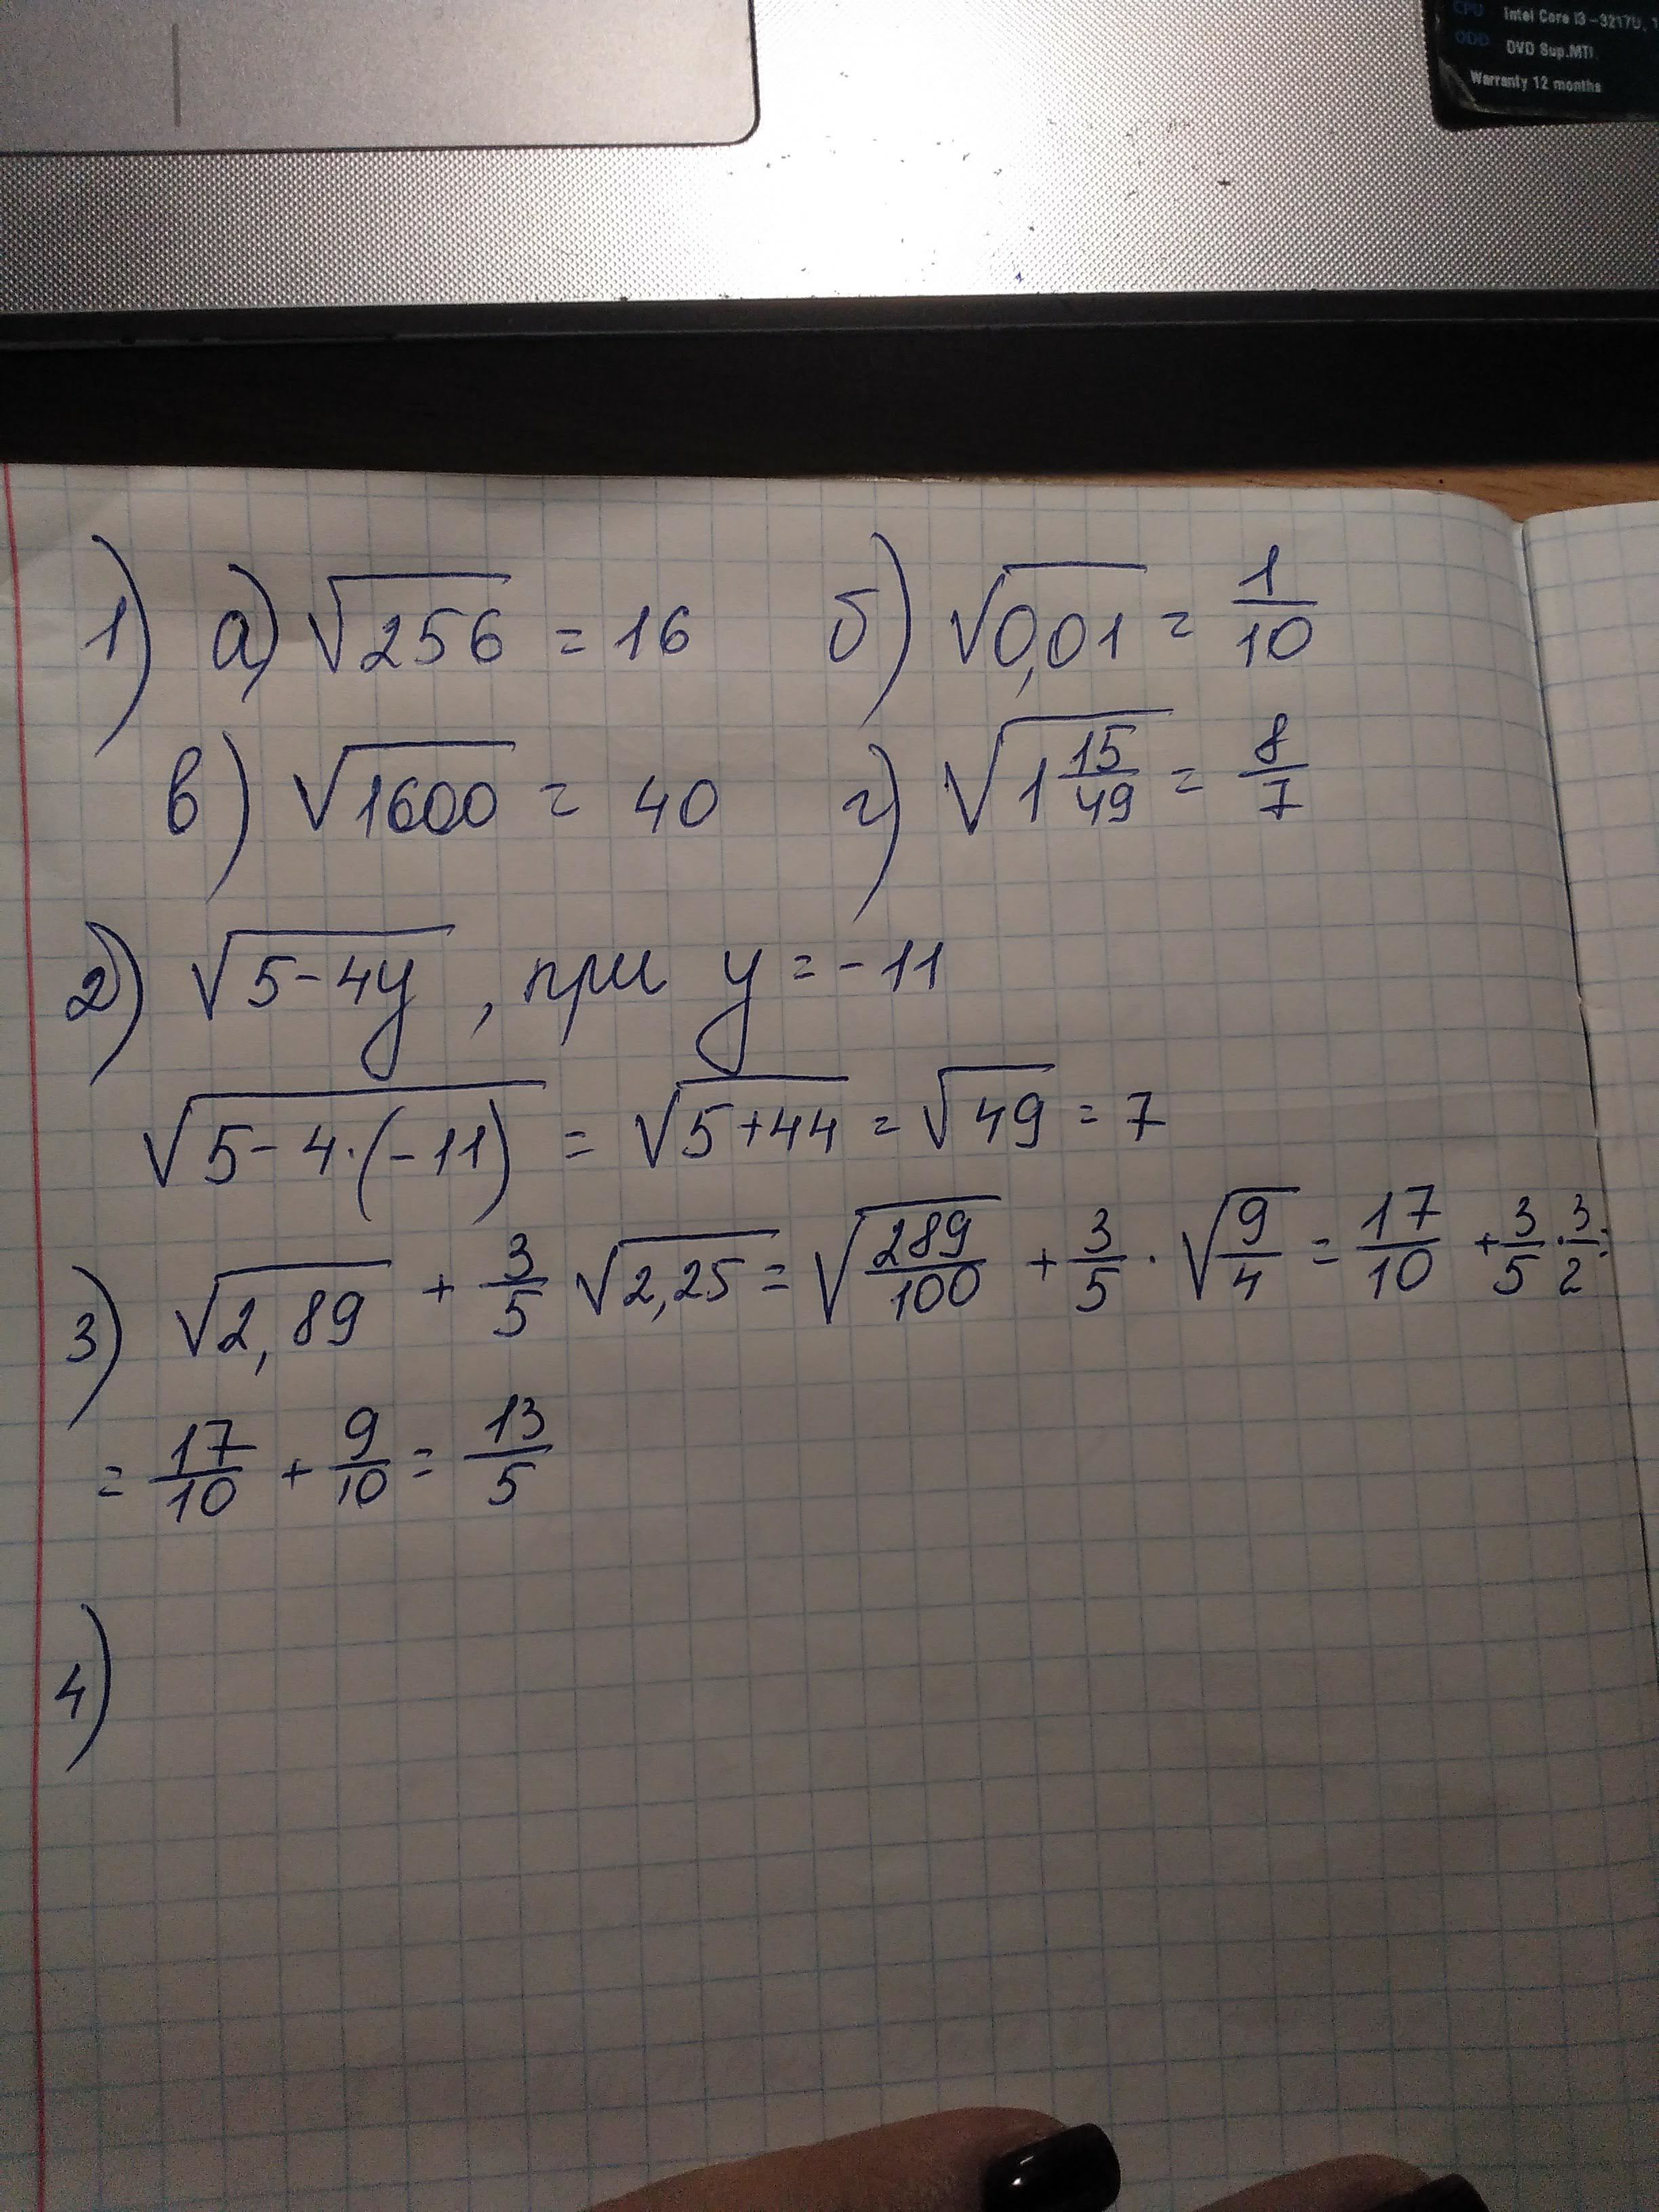 CPU Intel Core i3-3217U, 1
ODD DVD Sup.MTI
Warranty 12 months
1) а) √256 = 16 б) √0,01 = 1/10
в) √1600 = 40 г) √(1 15/49) = 8/7
2) √(5-4y), при y = -11
√(5-4·(-11)) = √(5+44) = √49 = 7
3) √2,89 + 3/5 √2,25 = √(289/100) + 3/5 · √(9/4) = 17/10 + 3/5 · 3/2 =
= 17/10 + 9/10 = 13/5
4)